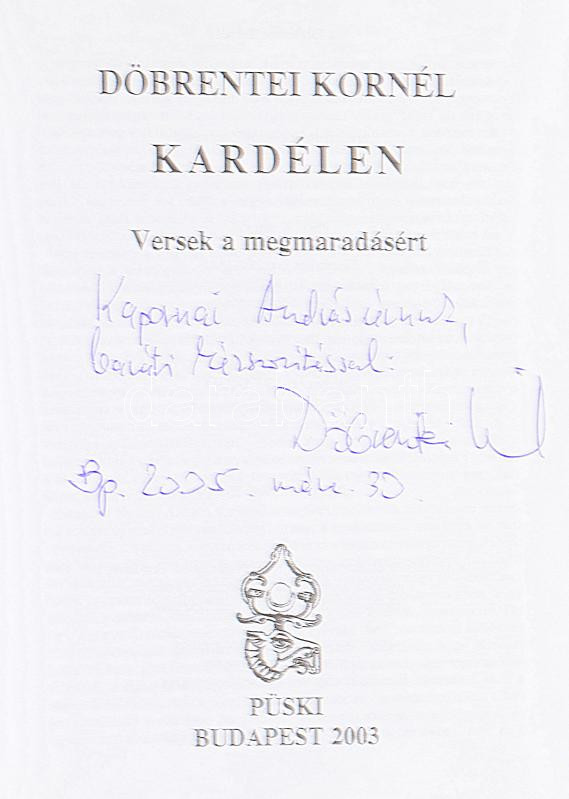 DÖBRENTEI KORNÉL
KARDÉLEN
Versek a megmaradásért
Kapornai
baráti kézszorítással:
Döbrentei Kornél
Bp. 2005. márc. 30.
PÜSKI
BUDAPEST 2003